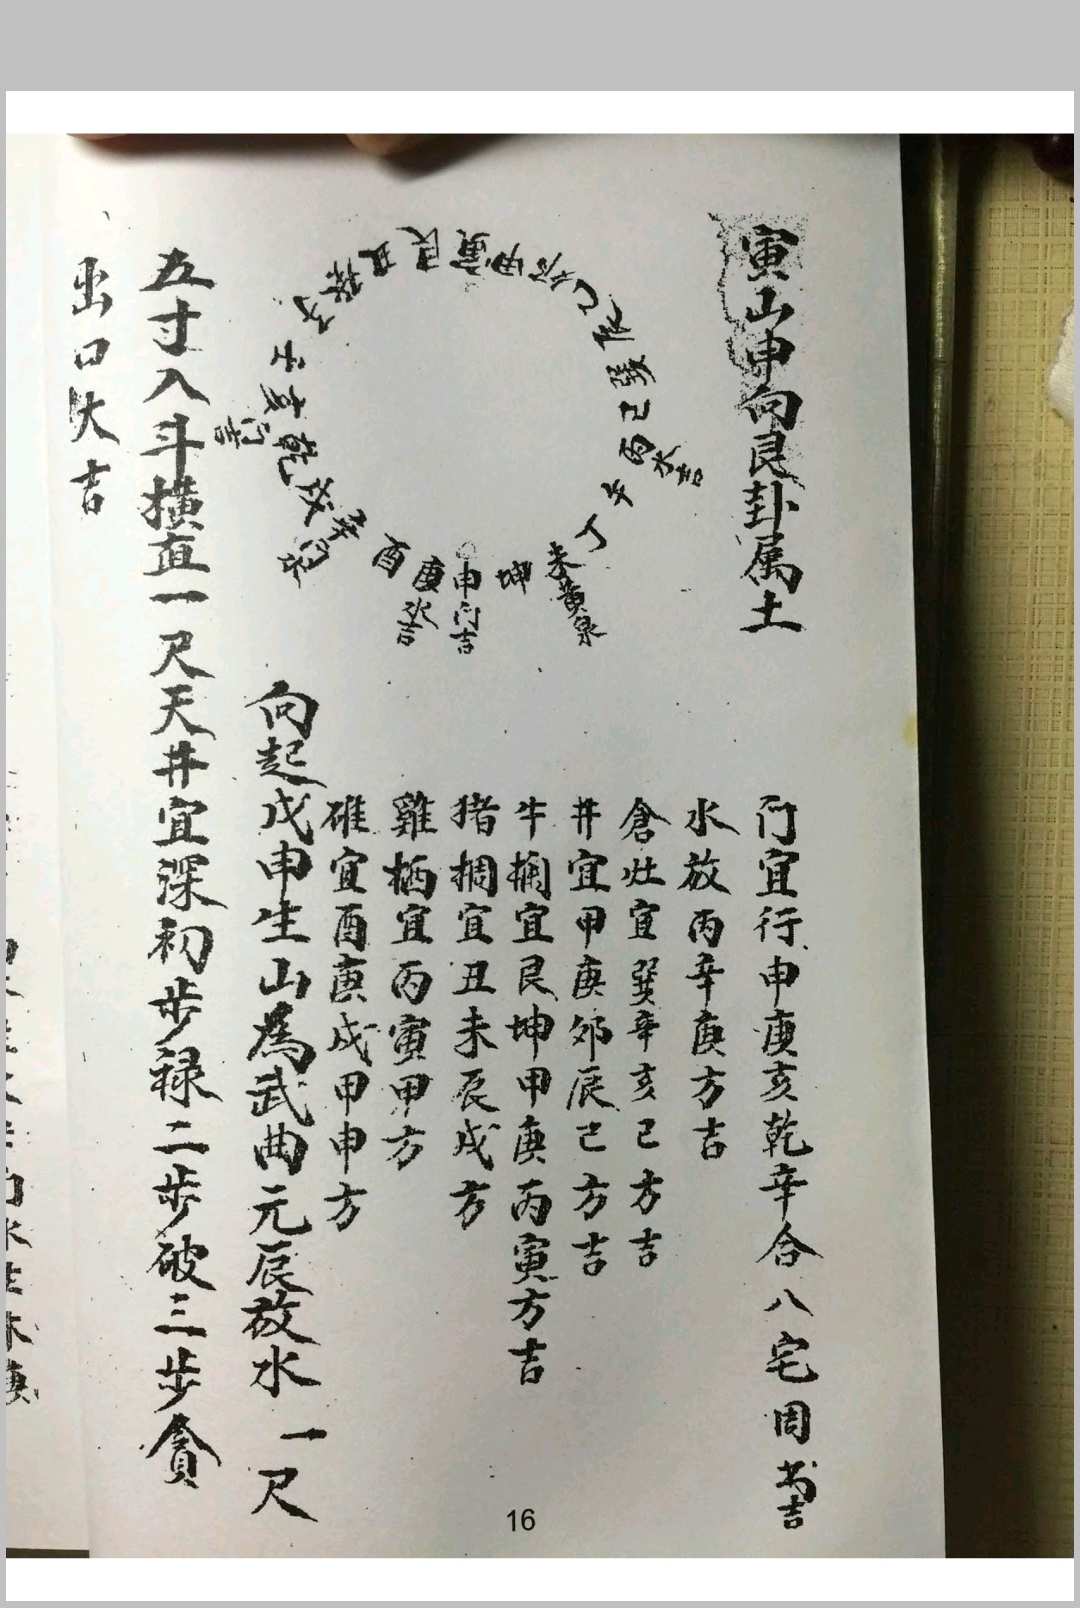 寅山申向艮卦属土
门宜行申庚亥乾辛合八宅周书吉
水放丙辛庚方吉
倉灶宜巽辛亥己方吉
井宜甲庚卯辰己方吉
牛欄宜艮坤甲庚丙寅方吉
猪稠宜丑未辰戌方
雞栖宜丙寅甲方
碓宜酉庚戌甲申方
寅
甲
卯
乙
辰
巽
巳
丙水吉
午
丁
未黄泉
坤
申门吉
庚水吉
酉
辛门水
戌
乾
亥门吉
壬
子
癸
丑
艮
向起戊申生山為武曲元辰放水一尺
五寸入斗横直一尺天井宜深初步禄二步破三步貪
出口大吉
16